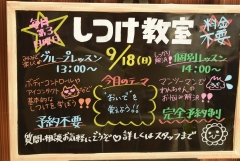 毎月第3日曜
しつけ教室
料金不要
みんなで楽しく
グループレッスン
13:00〜
9/18(日)
しっかり解決
個別レッスン
14:00〜
ボディーコントロールや
アイコンタクト
基本的な
しつけを学ぼう!
今日のテーマ
"おいで"を
覚えよう!!
マンツーマンで
わんちゃんの
お悩み解決!!
予約不要
完全予約制
質問・相談お気軽にどうぞ♡詳しくはスタッフまで